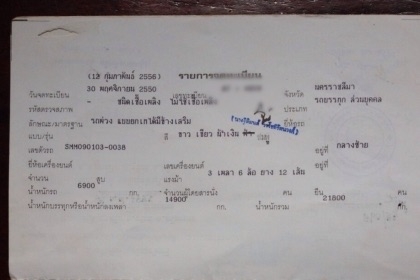 (12 กุมภาพันธ์ 2556) รายการจดทะเบียน
วันจดทะเบียน 30 พฤศจิกายน 2550 เลขทะเบียน จังหวัด นครราชสีมา
รหัสตรวจสภาพ - ชนิดเชื้อเพลิง ไม่ใช้เชื้อเพลิง ประเภท รถบรรทุก ส่วนบุคคล
ลักษณะ/มาตรฐาน รถพ่วง ยี่ห้อรถ
แบบ/รุ่น สี ขาว เขียว น้ำเงิน ชมพู
เลขตัวรถ SMM090103-0038 อยู่ที่ กลางซ้าย
ยี่ห้อเครื่องยนต์ เลขเครื่องยนต์ อยู่ที่
จำนวน สูบ แรงม้า 3 เพลา 6 ล้อ ยาง 12 เส้น
น้ำหนักรถ 6900 กก. จำนวนผู้โดยสารนั่ง คน ยืน คน
น้ำหนักบรรทุกหรือน้ำหนักลงเพลา 14900 กก. น้ำหนักรวม 21800 กก.